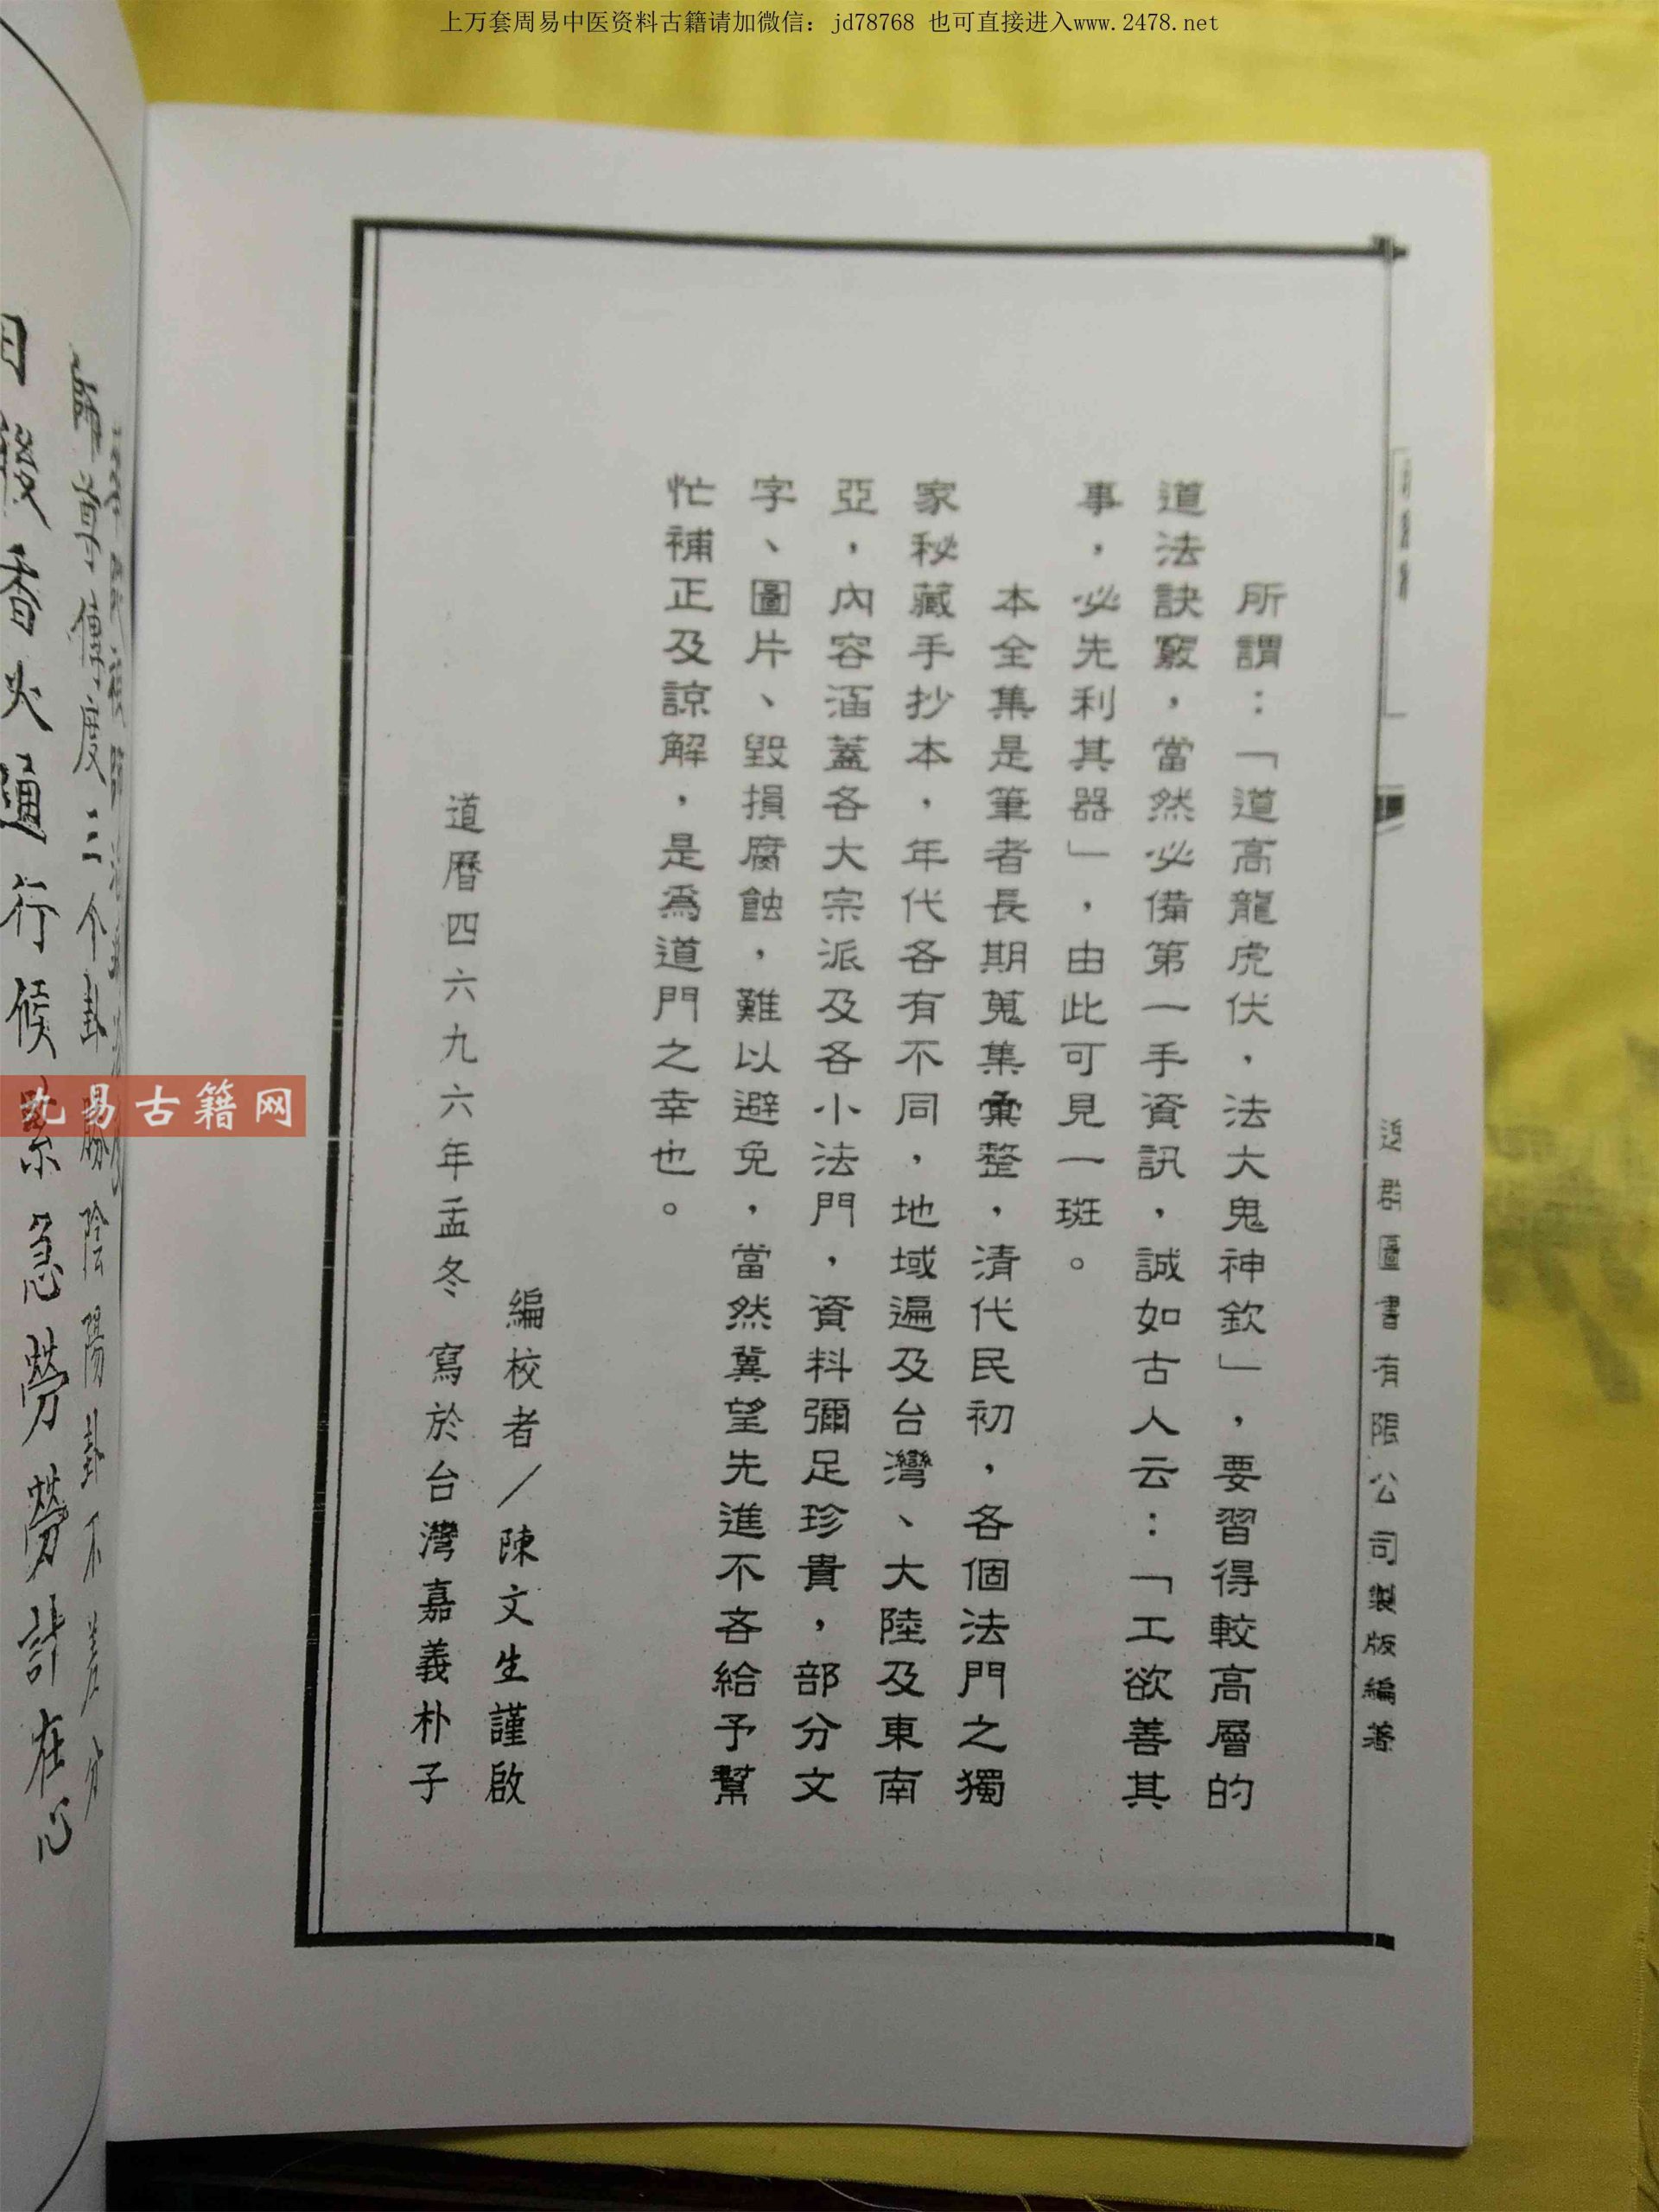 上万套周易中医资料古籍请加微信：jd78768 也可直接进入www.2478.net
群圖書有限公司製版編著
所謂：「道高龍虎伏，法大鬼神欽」，要習得較高層的
道法訣竅，當然必備第一手資訊，誠如古人云：「工欲善其
事，必先利其器」，由此可見一斑。
本全集是筆者長期蒐集彙整，清代民初，各個法門之獨
家秘藏手抄本，年代各有不同，地域遍及台灣、大陸及東南
亞，內容涵蓋各大宗派及各小法門，資料彌足珍貴，部分文
字、圖片、毀損腐蝕，難以避免，當然冀望先進不吝給予幫
忙補正及諒解，是為道門之幸也。
編校者／陳文生謹啟
道曆四六九六年孟冬 寫於台灣嘉義朴子
師尊傳度三个卦勝陰陽卦不差分
日後香火通行候 急勞勞計在心
九易古籍网